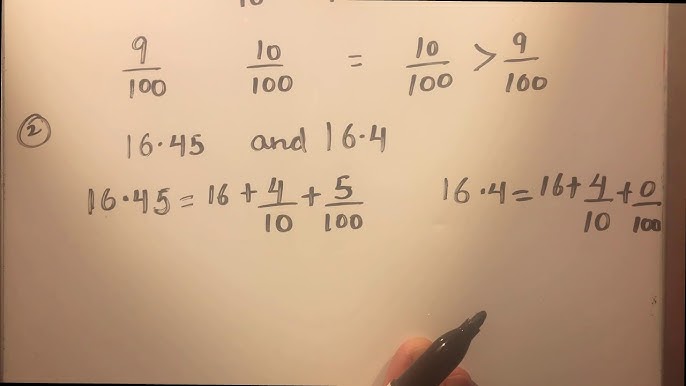 9/100 10/100 = 10/100 > 9/100
② 16.45 and 16.4
16.45 = 16 + 4/10 + 5/100 16.4 = 16 + 4/10 + 0/100